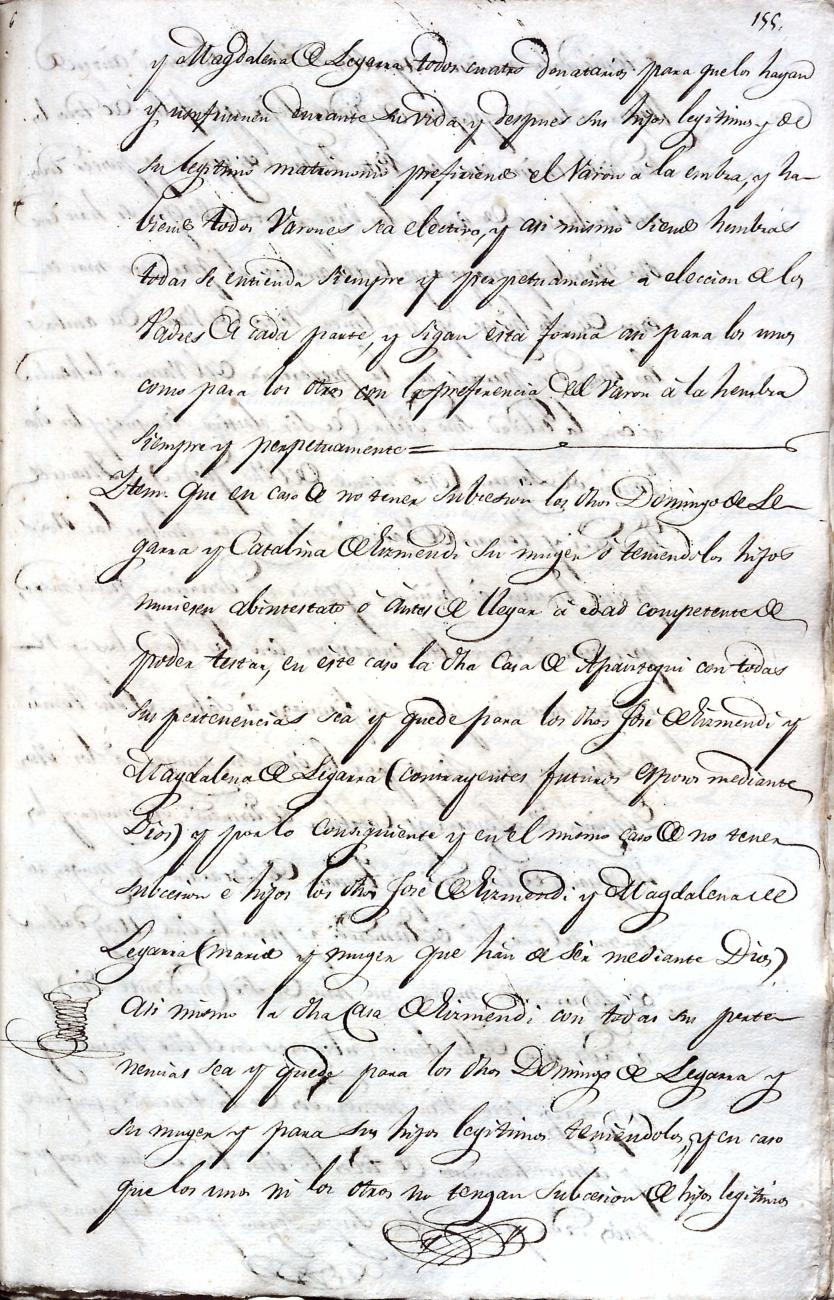 155.
y Magdalena de Legarra todos cuatro donatarios para que los hayan
y usufruuen durante su vida, y despues sus hijos legitimos y de
su legitimo matrimonio prefiriendo el Varon à la embra, y ha-
biendo todos Varones sea electivo, y asi mismo siendo hembras
todas se entienda siempre y perpetuamente a eleccion de los
Padres de cada parte, y sigan esta forma asi para los unos
como para los otros con la preferencia del Varon à la hembra
siempre y perpetuamente =
Item. Que en caso de no tener subcesion los dhos Domingo de Le-
garra y Catalina de Eizmendi su muger ó teniendolos hijos
muriesen abintestato ó àntes de llegar à edad competente de
poder testar, en éste caso la dha Casa de Apaiztegui con todas
sus pertenencias sea y quede para los dhos José de Eizmendi y
Magdalena de Legarra (contrayentes futuros esposos mediante
Dios) y por lo consiguiente y en el mismo caso de no tener
subcesion é hijos los dhos José de Eizmendi y Magdalena de
Legarra (marido y muger que hàn de sèr mediante Dios)
asi mismo la dha Casa de Eizmendi con todas sus perte-
nencias sea y quede para los dhos Domingo de Legarra y
su muger y para sus hijos legitimos teniéndolos, y en caso
que los unos ni los otros no tengan subcesion de hijos legitimos